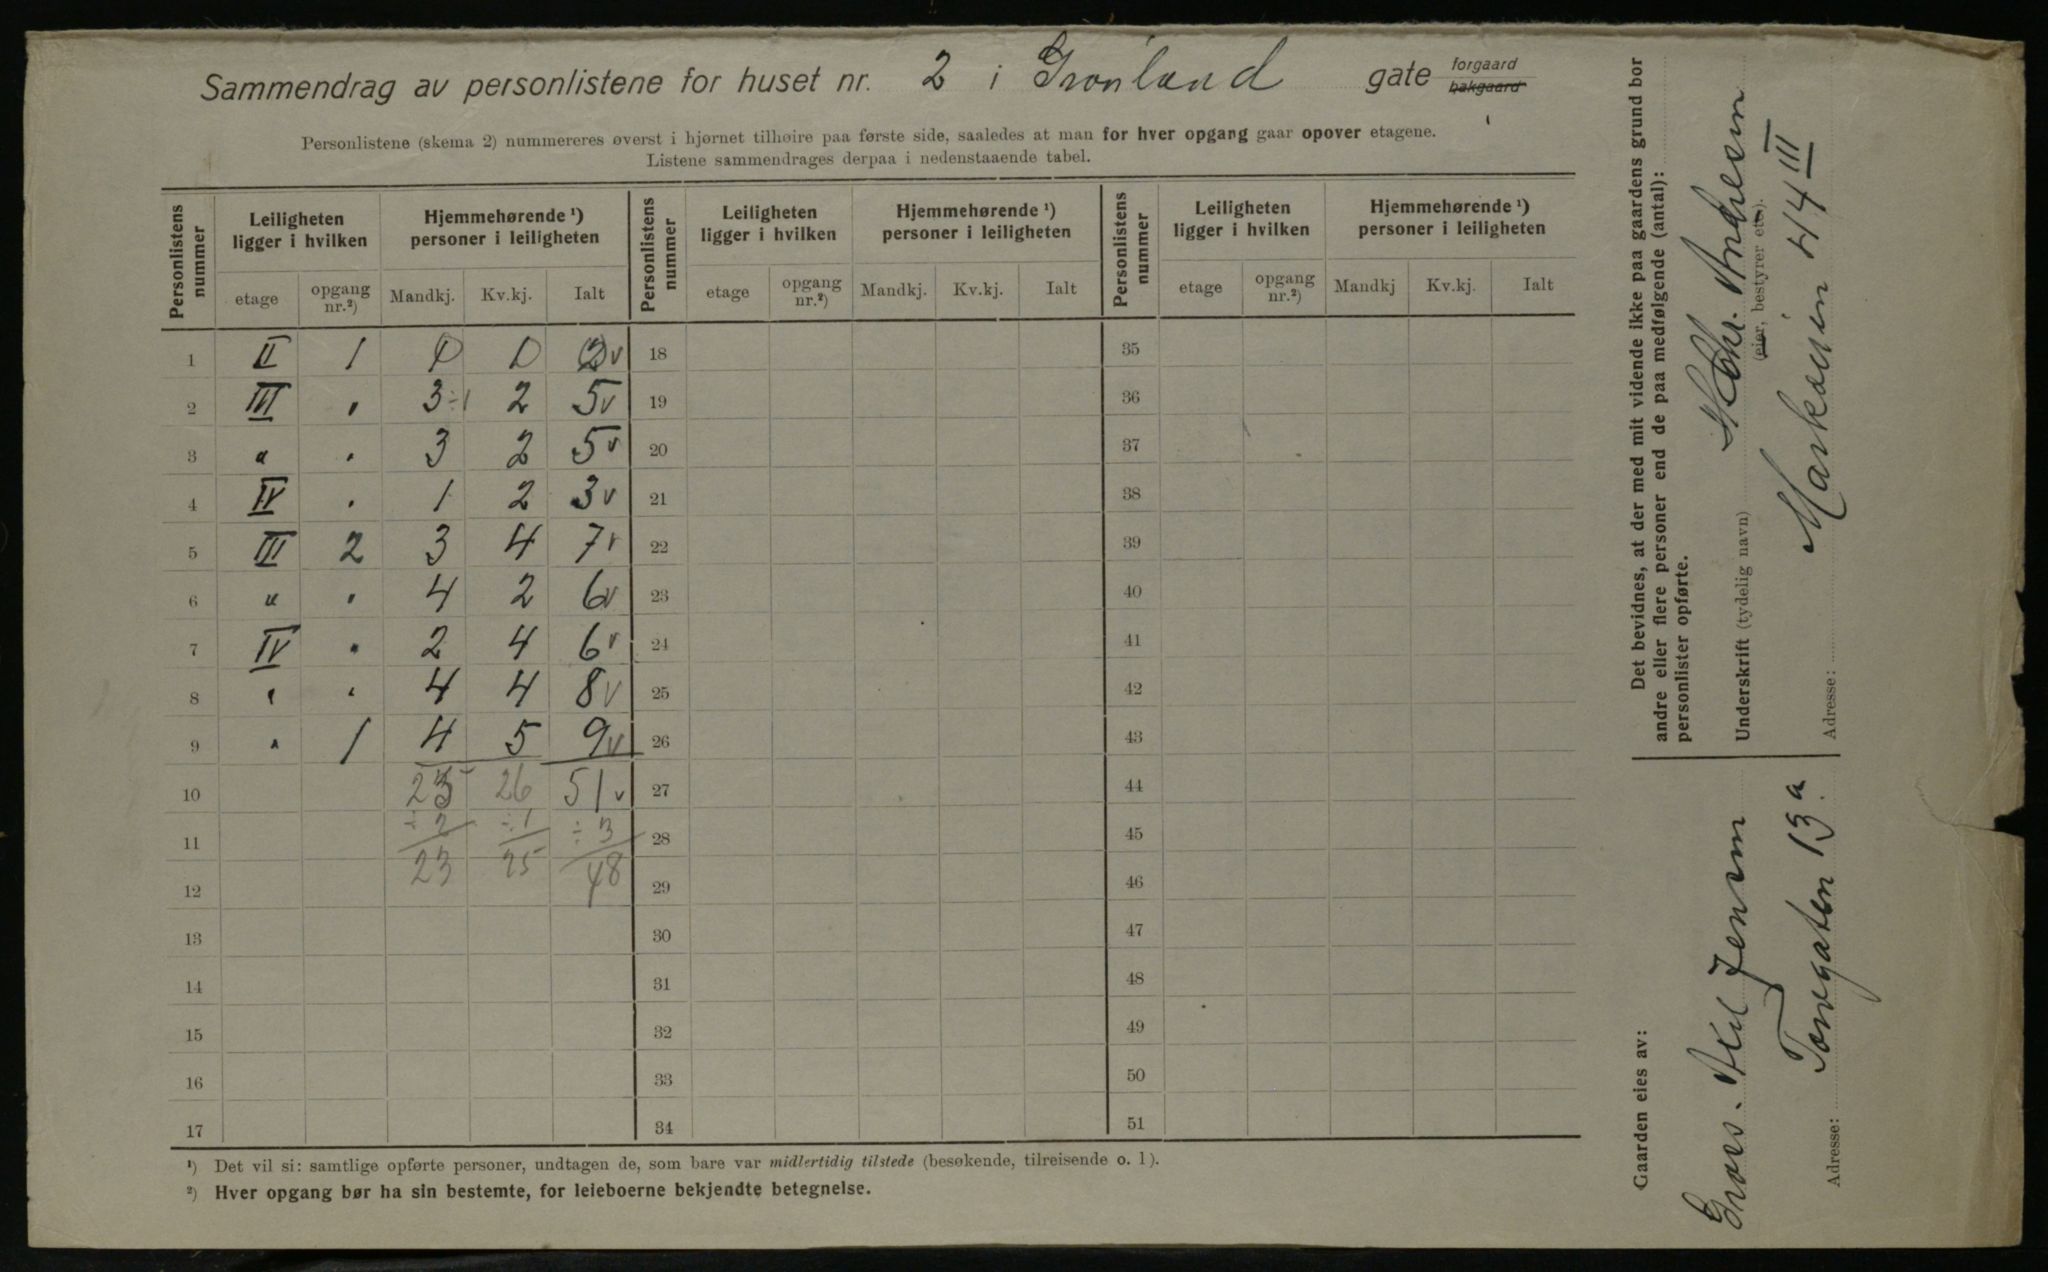 Sammendrag av personlistene for huset nr. 2 i Grønland gate forgaard bakgaard
Personlistene (skema 2) nummereres øverst i hjørnet tilhøire paa første side, saaledes at man for hver opgang gaar opover etagene.
Listene sammendrages derpaa i nedenstaaende tabel.
Personlistens nummer | Leiligheten ligger i hvilken | Hjemmehørende ¹) personer i leiligheten | Personlistens nummer | Leiligheten ligger i hvilken | Hjemmehørende ¹) personer i leiligheten | Personlistens nummer | Leiligheten ligger i hvilken | Hjemmehørende ¹) personer i leiligheten
etage | opgang nr.²) | Mandkj. | Kv.kj. | Ialt | etage | opgang nr.²) | Mandkj. | Kv.kj. | Ialt | etage | opgang nr.²) | Mandkj | Kv.kj. | Ialt
1 II 1 1 1 2 v 18 35
2 III " 3 ÷1 2 5 v 19 36
3 " " 3 2 5 v 20 37
4 IV " 1 2 3 v 21 38
5 III 2 3 4 7 v 22 39
6 " " 4 2 6 v 23 40
7 IV " 2 4 6 v 24 41
8 " " 4 4 8 v 25 42
9 " 1 4 5 9 v 26 43
10 25 26 51 v 27 44
11 ÷2 ÷1 ÷3 28 45
12 23 25 48 29 46
13 30 47
14 31 48
15 32 49
16 33 50
17 34 51
¹) Det vil si: samtlige opførte personer, undtagen de, som bare var midlertidig tilstede (besøkende, tilreisende o. l).
²) Hver opgang bør ha sin bestemte, for leieboerne bekjendte betegnelse.
Det bevidnes, at der med mit vidende ikke paa gaardens grund bor
andre eller flere personer end de paa medfølgende (antal):
personlister opførte.
Underskrift (tydelig navn) Chr. Andresen
(eier, bestyrer etc).
Adresse: Markveien 44 III
Gaarden eies av:
Gros. Axel Jensen
Adresse: Torvgaten 13 a